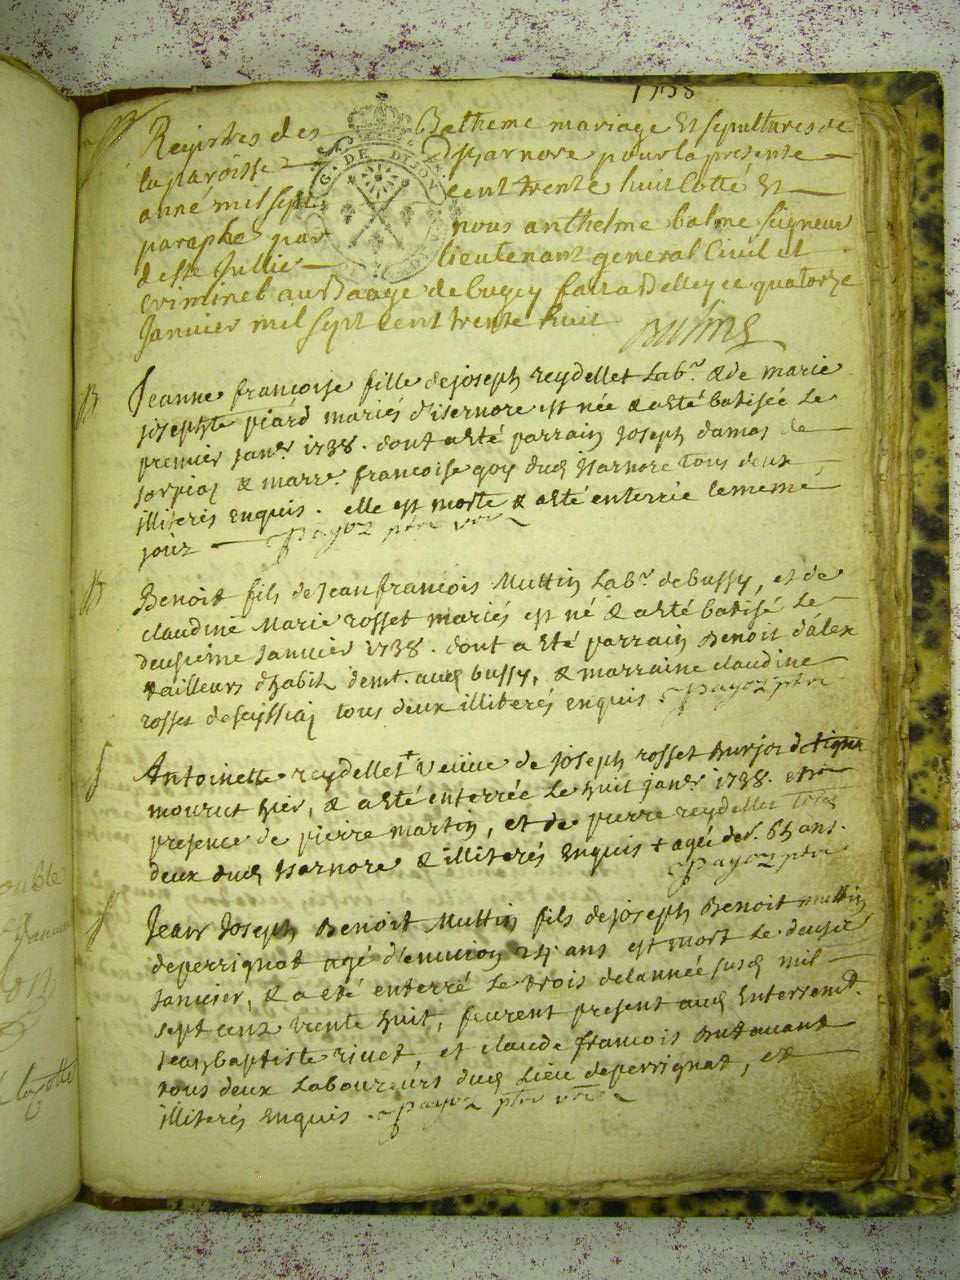 1738
Registres des Batheme mariage Et sepultures de
la paroisse Dysarnore pour la presente
anné mil sept cent trente huit cotté Et
paraphé par nous anthelme balme seigneur
de Ste Jullie lieutenant general Civil et
Criminel au Baage de bugey fait a Belley ce quatorze
Janvier mil sept cent trente huit Balme
G. DE DIJON
B
Jeanne francoise fille de joseph reydellet Labr. & de marie
josephte piard mariés d'isernore est née & a eté batisée Le
premier janer 1738. dont a eté parrain joseph damas de
& marre. francoise goy dud Isarnore tous deux
illiterés enquis. elle est morte & a eté enterrie le meme
jour Payoz ptre
B
Benoit fils de Jean francois Muttin Labr. de bussy, et de
claudine Marie rosset mariés est né & a eté batisé Le
deusieme Janvier 1738. dont a eté parrain Benoit dalex
tailleurs dhabit demt. aud bussy, & marraine claudine
rosset de tous deux illiterés enquis Payoz ptre
S
Antoinette reydellet + veüve de joseph rosset
mourut hier, & a eté enterrée Le huit janer 1738. en
presence de pierre martin, et de pierre reydellet tous
deux dud Isarnore & illiterés Enquis + ageé de 65 ans.
Payoz ptre
S
Jean Joseph Benoit Muttin fils de joseph Benoit muttin
deperrignat agé d'environ 24 ans est mort Le deusie
Janvier, & a eté enterré Le trois de lannée susd mil
sept cens trente huit, furent present aud Enterremt.
Jean baptiste rivet, et claude francois butavant
tous deux Laboureurs dud Lieu deperrignat, et
illiterés Enquis. Payoz ptre